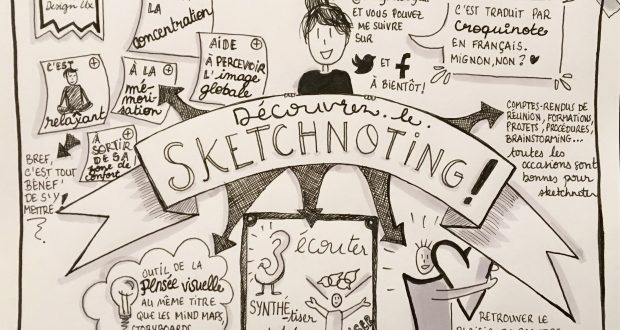 Design UX
la
concentration
et vous pouvez
me suivre
sur
et
à bientôt!
c'est traduit par
Croquinote
en français.
Mignon, non?
Aide
à percevoir
l'image
globale
à la
mémo-
risation
C'est
relaxant
à
sortir
de sa
zone de
confort
Bref,
c'est tout
bénef'
de s'y
mettre!
Découvrez le
SKETCHNOTING!
Comptes-rendus de
réunion, formations,
projets, procédures,
brainstorming...
toutes les
occasions sont
bonnes pour
sketchnoter
Outil de la
pensée visuelle
au même titre
que les mind maps,
storyboards
3
écouter
synthé-
tiser
Retrouver le